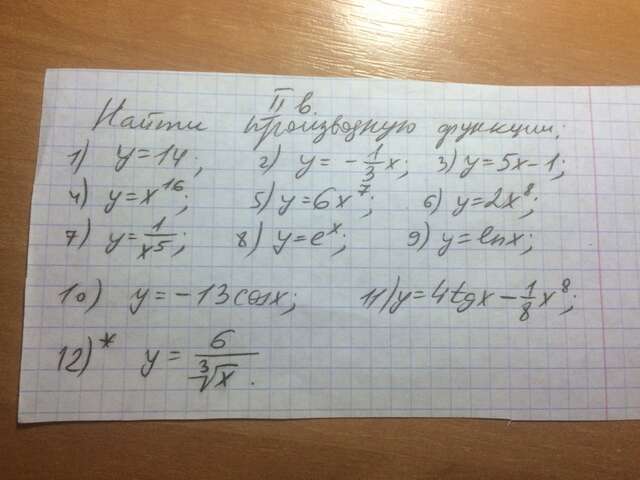 II в.
Найти производную функции:
1) y=14; 2) y = -1/3 x; 3) y=5x-1;
4) y=x^16; 5) y=6x^7; 6) y=2x^8;
7) y=1/x^5; 8) y=e^x; 9) y=lnx;
10) y=-13cosx; 11) y=4tgx-1/8 x^8;
12)* y= 6/∛x.